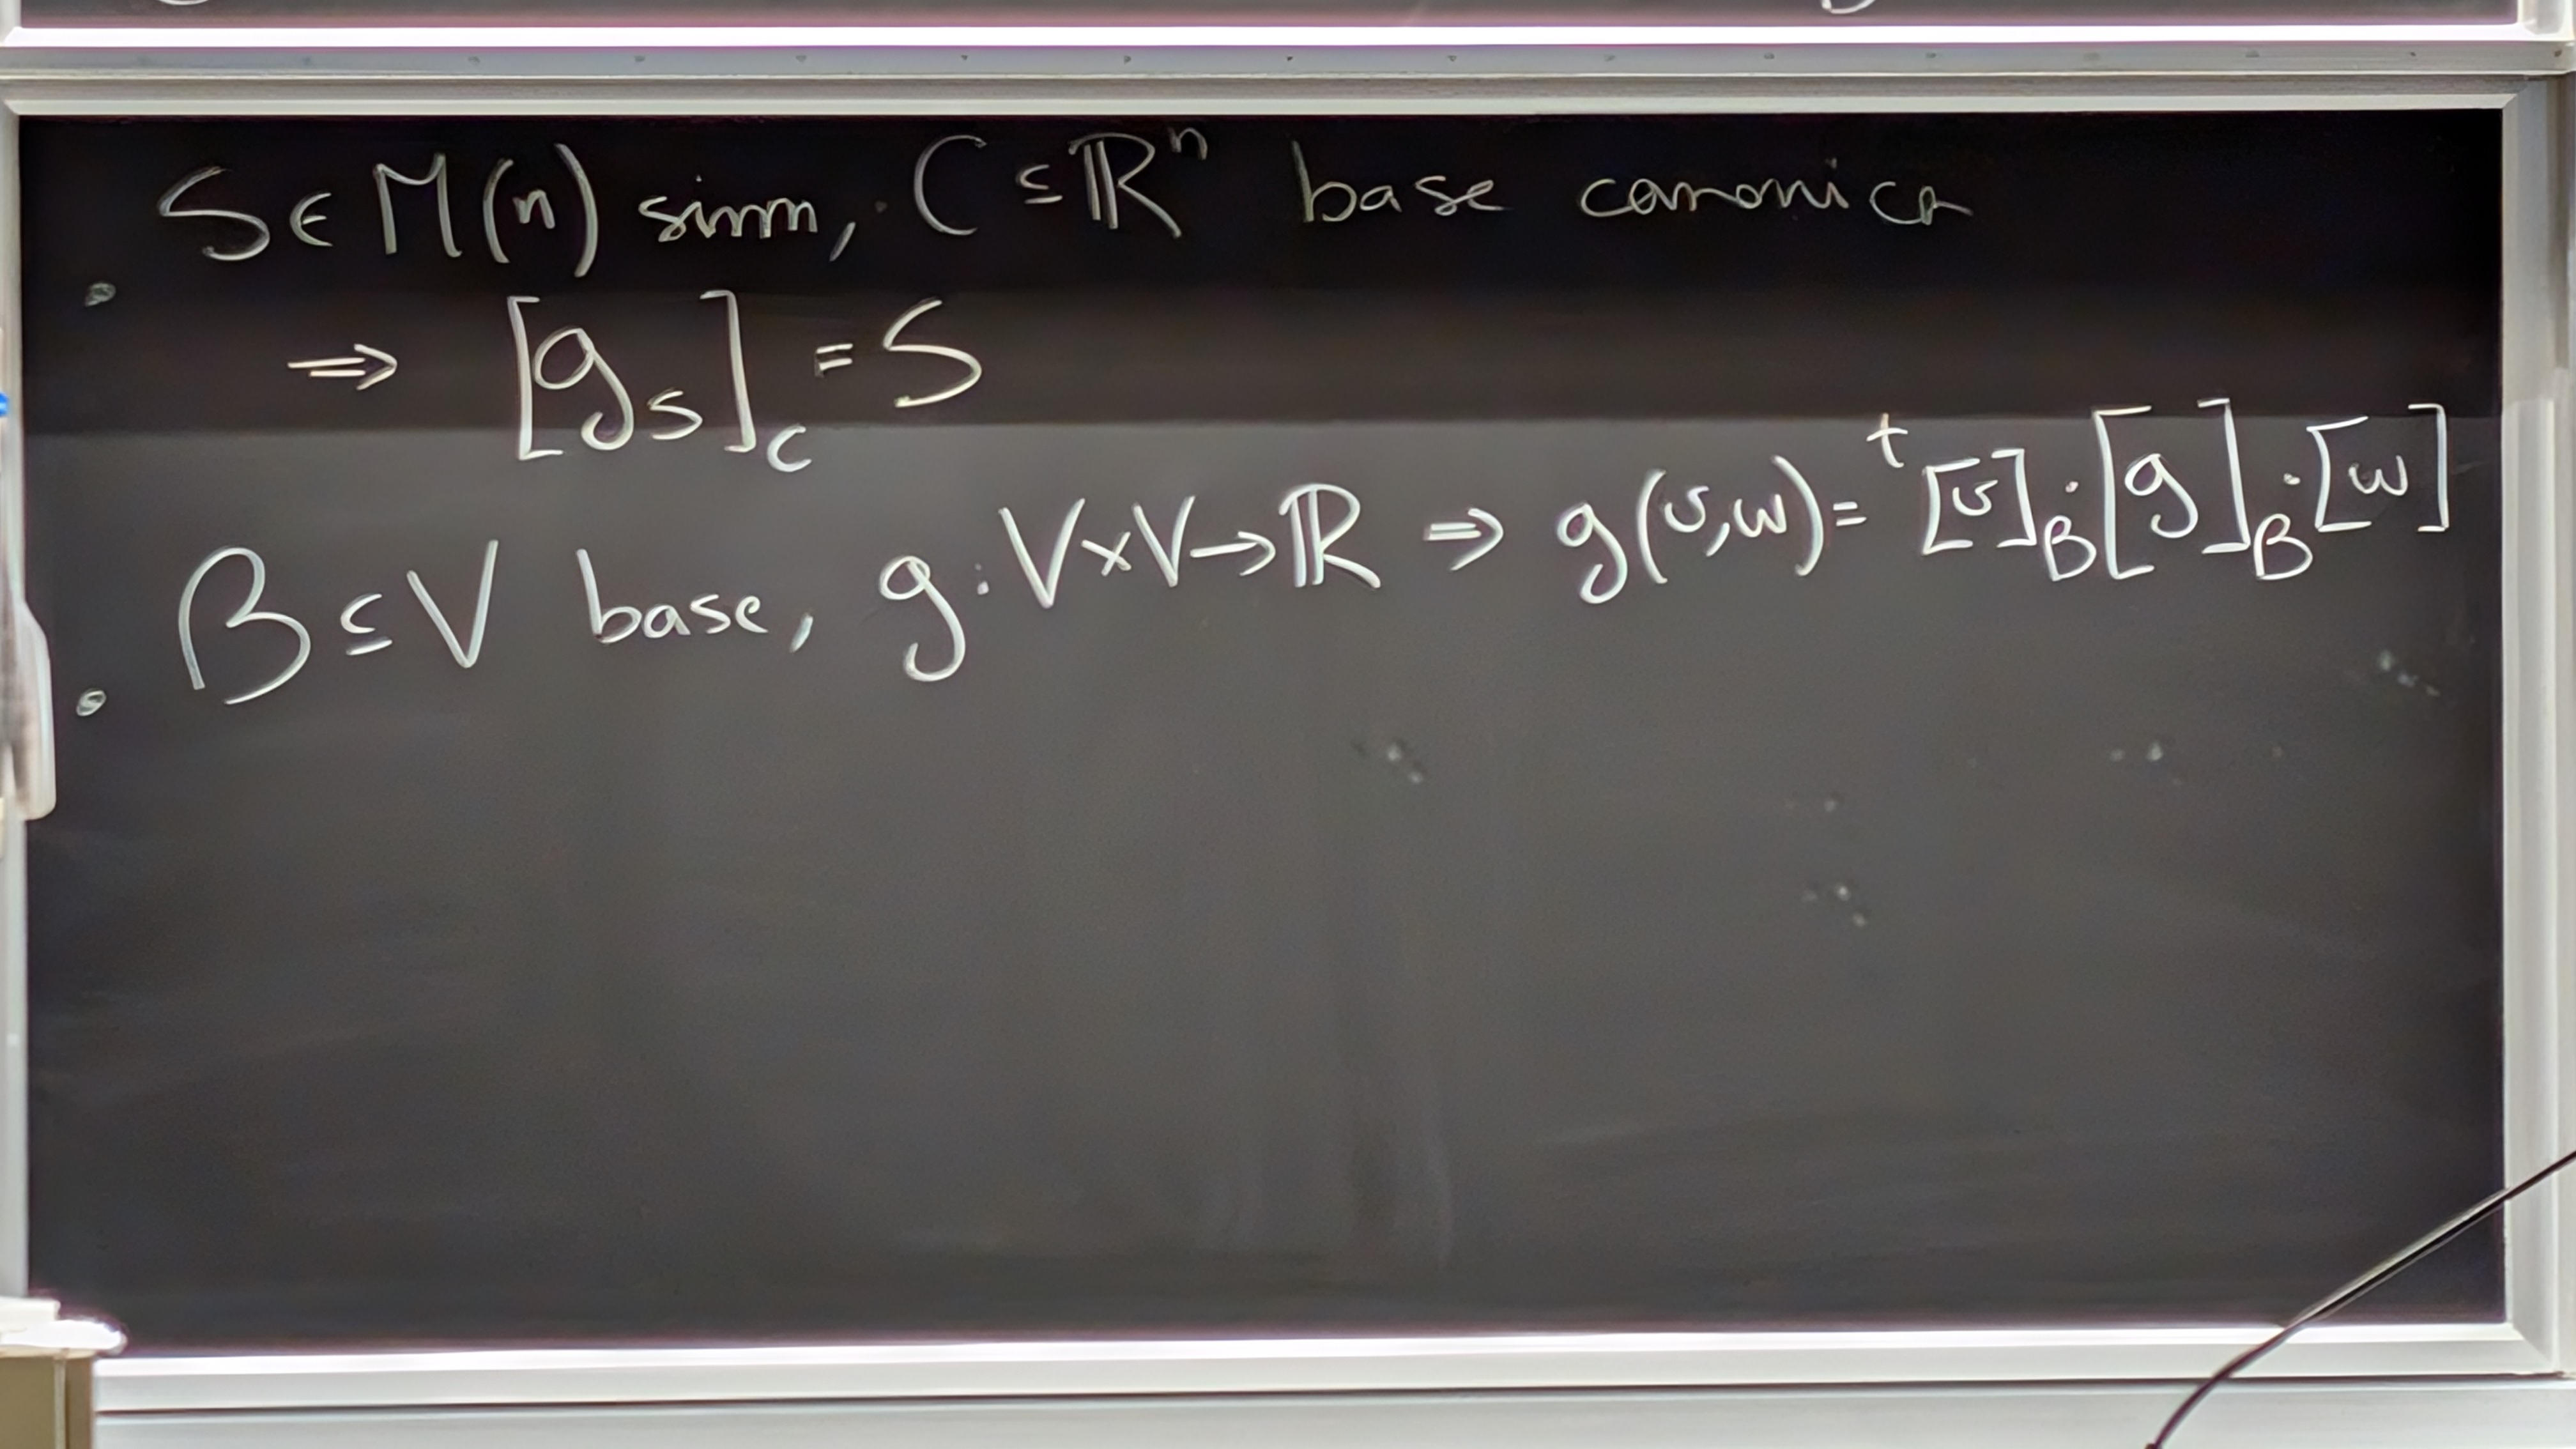 S ∈ M(n) simm, C ⊆ ℝⁿ base canonica
⇒ [g_S]_C = S
B ⊆ V base, g: V×V → ℝ ⇒ g(v,w) = ᵗ[v]_B · [g]_B · [w]